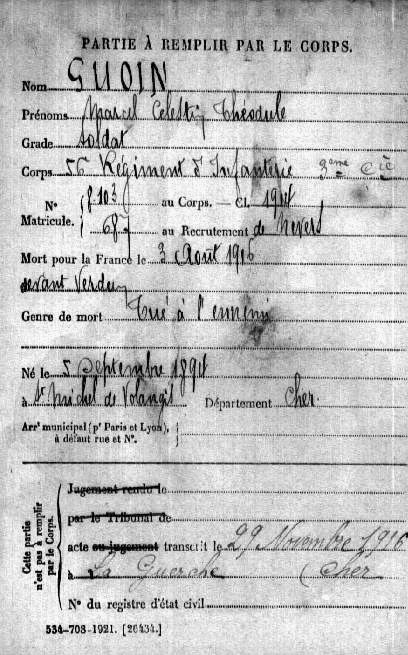 PARTIE À REMPLIR PAR LE CORPS.
Nom GUOIN
Prénoms Marcel Célestin Théodule
Grade soldat
Corps 56 Régiment d'Infanterie 3ème Cie
N° Matricule. { 8103 au Corps. — Cl. 1914
687 au Recrutement de Nevers
Mort pour la France le 3 Août 1916
devant Verdun
Genre de mort Tué à l'ennemi
Né le 5 Septembre 1894
à St Michel de Volangis Département Cher
Arrt municipal (pr Paris et Lyon), à défaut rue et N°.
Cette partie n'est pas à remplir par le Corps.
Jugement rendu le
par le Tribunal de
acte ou jugement transcrit le 29 Novembre 1916
à La Guerche (Cher
N° du registre d'état civil
534-708-1921. [26434.]